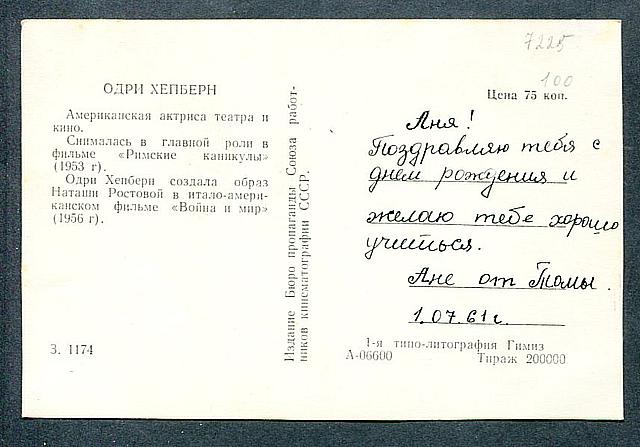 7225
100
ОДРИ ХЕПБЕРН
Цена 75 коп.
Американская актриса театра и
кино.
Снималась в главной роли в
фильме «Римские каникулы»
(1953 г).
Одри Хепберн создала образ
Наташи Ростовой в итало-амери-
канском фильме «Война и мир»
(1956 г).
З. 1174
Издание Бюро пропаганды Союза работ-
ников кинематографии СССР.
Аня!
Поздравляю тебя с
днем рождения и
желаю тебе хорошо
учиться.
Ане от Томы.
1.07.61г.
1-я типо-литография Гимиз
А-06600 Тираж 200000